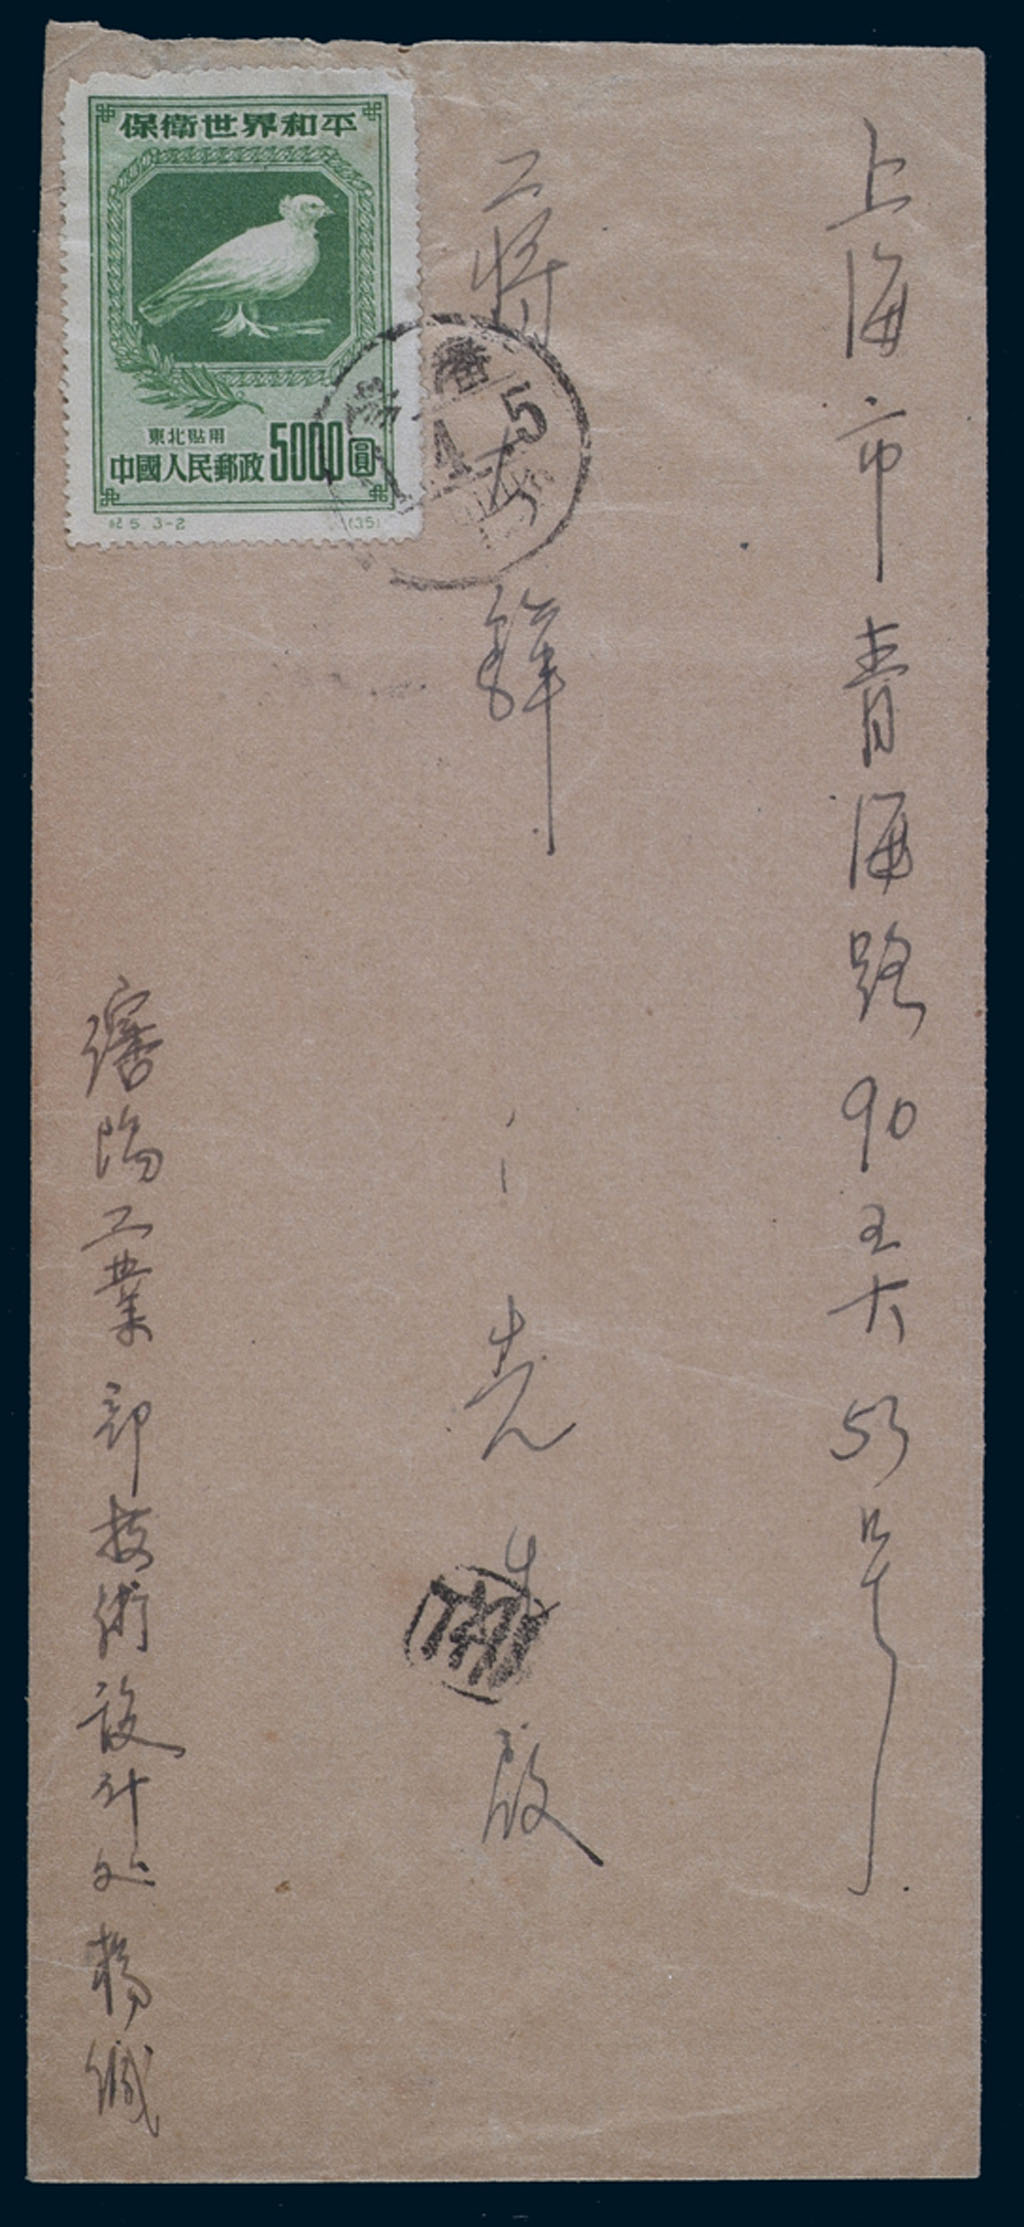 上海市青海路90弄53号
蒋
先生啟
瀋陽工業部技術設計处楊緘
保衛世界和平
東北貼用
中國人民郵政 5000圓
紀5. 3-2 (35)
瀋 5